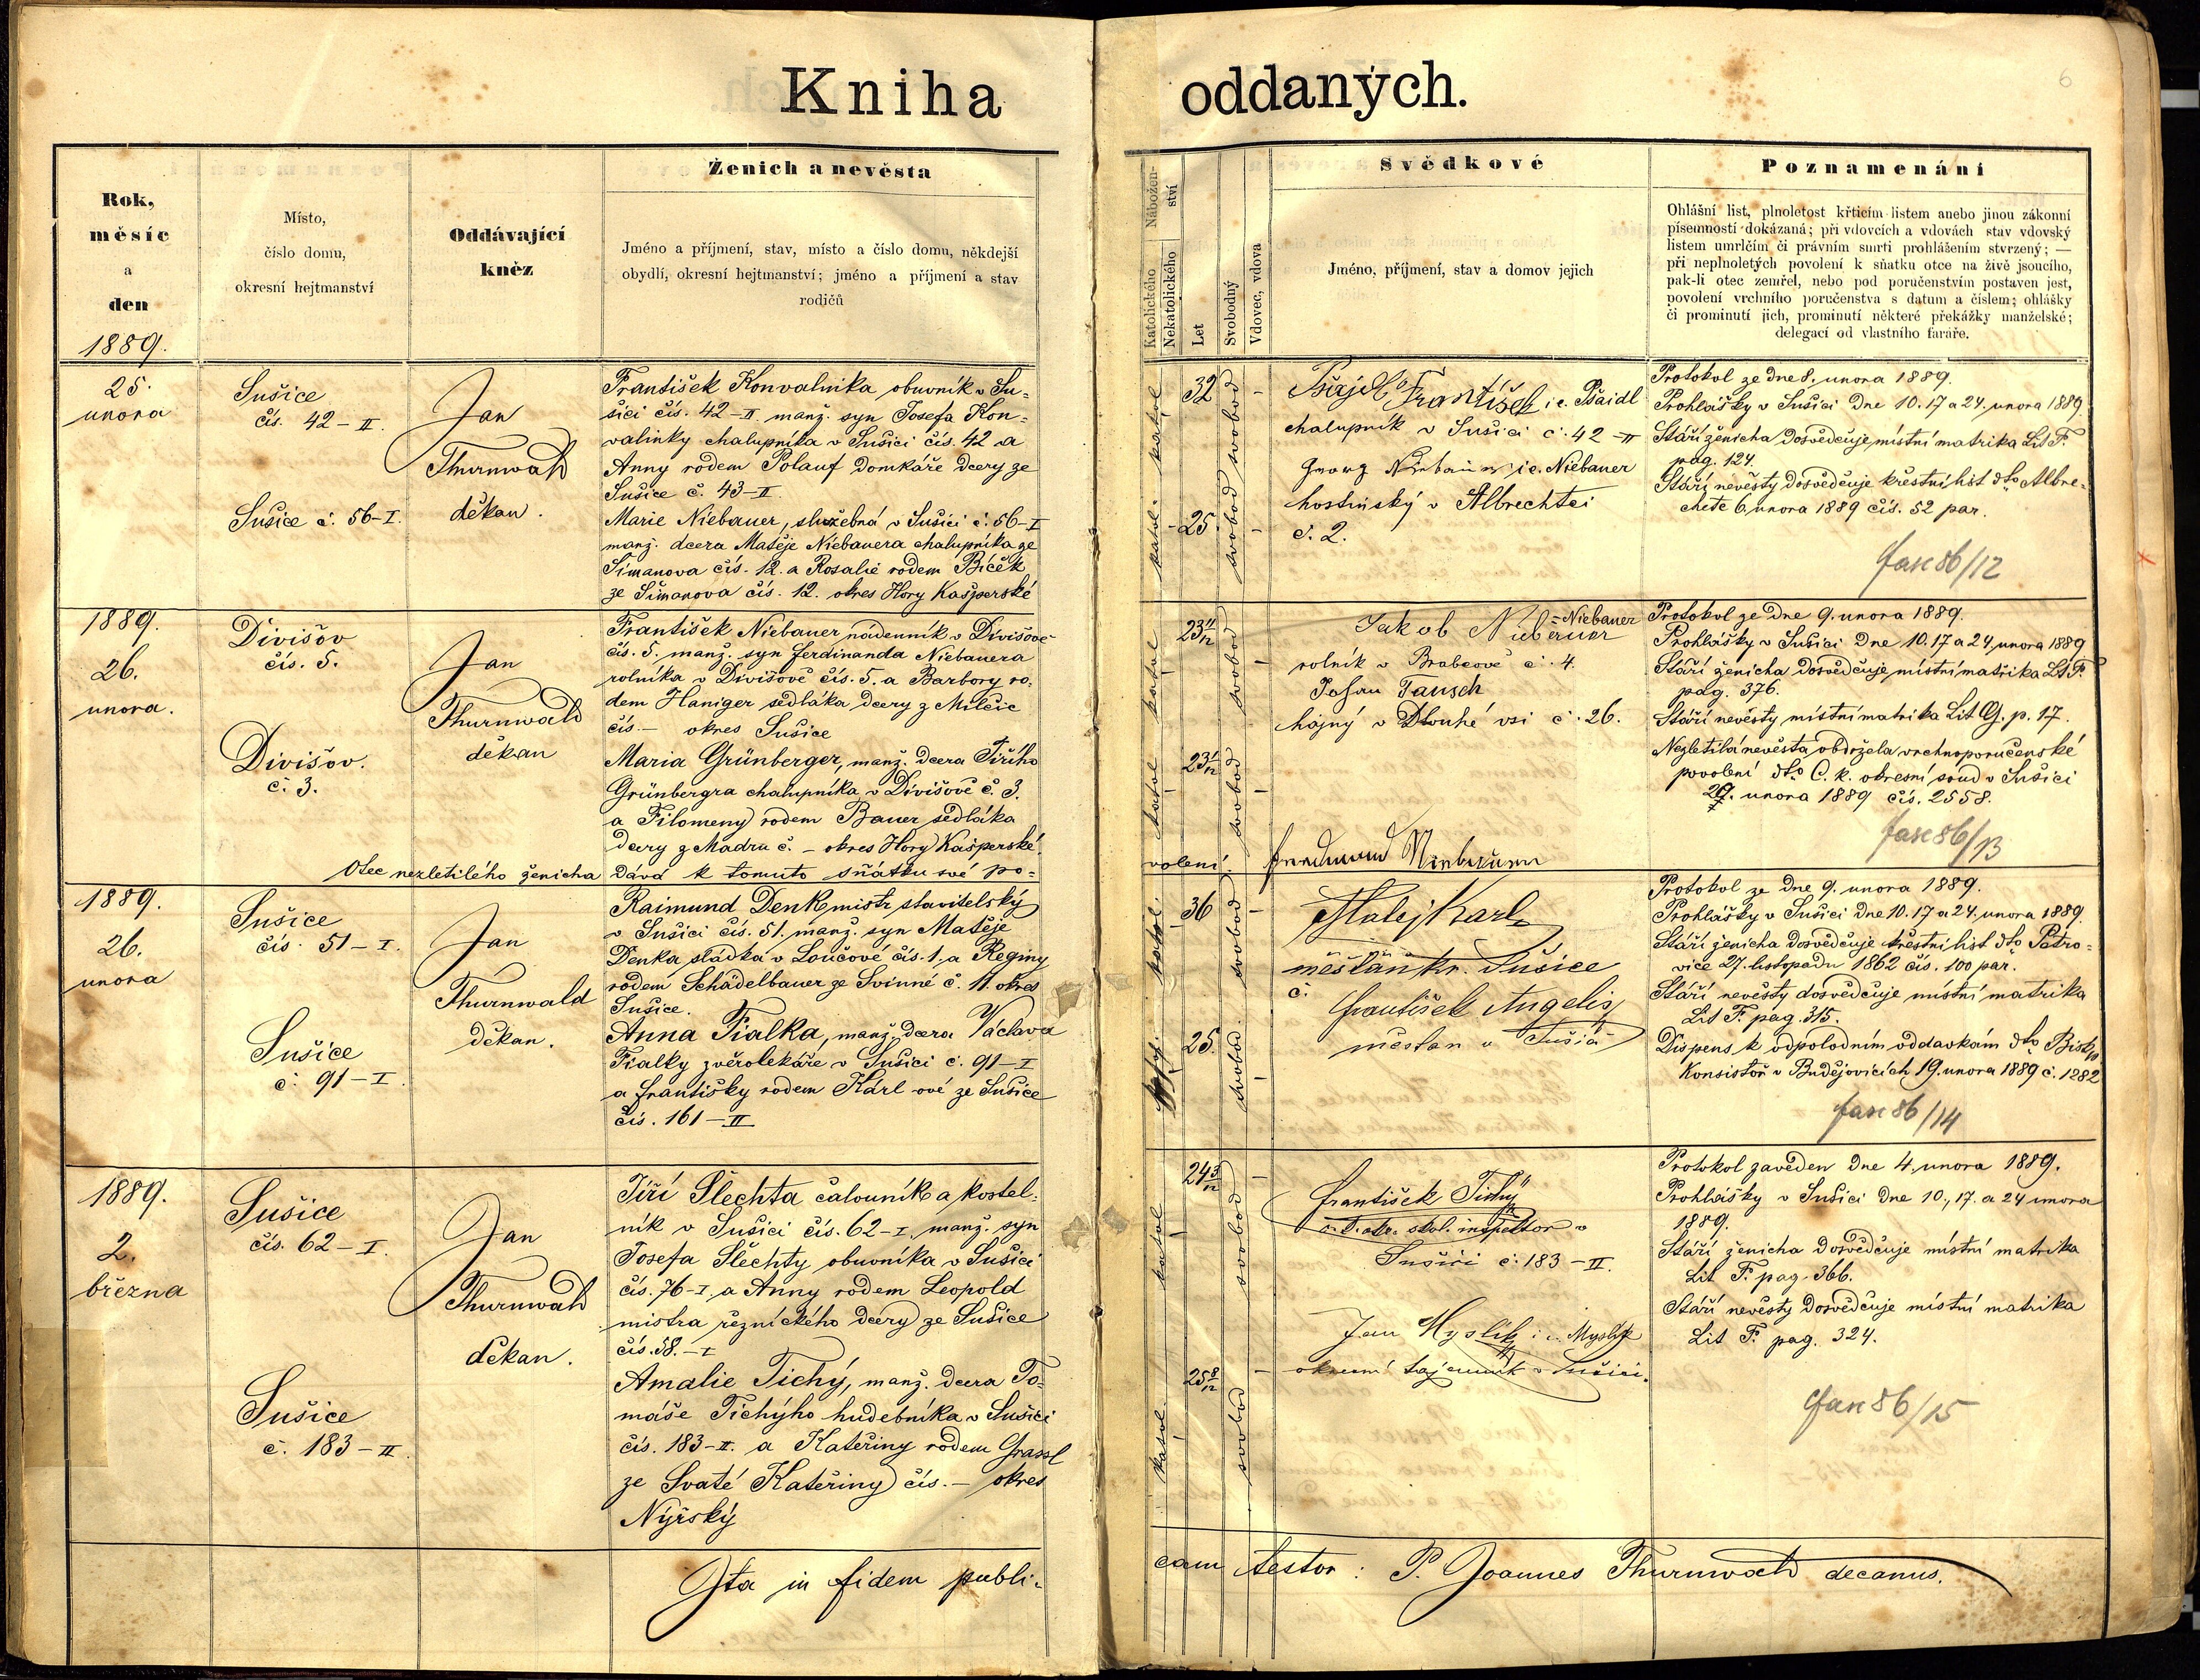 Kniha oddaných.
6
Rok,
měsíc
a
den
1889.
Místo,
číslo domu,
okresní hejtmanství
Oddávající
kněz
Ženich a nevěsta
Jméno a příjmení, stav, místo a číslo domu, někdejší
obydlí, okresní hejtmanství; jméno a příjmení a stav
rodičů
Nábožen-
ství
Katolického
Nekatolického
Let
Svobodný
Vdovec, vdova
Svědkové
Jméno, příjmení, stav a domov jejich
Poznamenání
Ohlášní list, plnoletost křticím listem anebo jinou zákonní
písemností dokázaná; při vdovcích a vdovách stav vdovský
listem umrlčím či právním smrti prohlášením stvrzený; —
při neplnoletých povolení k sňatku otce na živě jsoucího,
pak-li otec zemřel, nebo pod poručenstvím postaven jest,
povolení vrchního poručenstva s datum a číslem; ohlášky
či prominutí jich, prominutí některé překážky manželské;
delegací od vlastního faráře.
25.
unora
Sušice
čís. 42-II.
Sušice č. 56-I.
Jan
Thurnwald
děkan.
František Konvalinka, obuvník v Su-
šici čís. 42-II. manž. syn Josefa Kon-
valinky chalupníka v Sušici čís. 42 a
Anny rodem Polauf domkáře dcery ze
Sušice č. 43-II.
Marie Niebauer, služebná v Sušici č. 56-I
manž. dcera Matěje Niebauera chalupníka ze
Šimanova čís. 12. a Rosalie rodem Bíček
ze Šimanova čís. 12. okres Hory Kašperské
katol. katol.
32
25
svobod svobod
František i.e. Pšaidl
chalupník v Sušici č. 42-II
Georg Niebauer i.e. Niebauer
hostinský v Albrechtci
č. 2.
Protokol ze dne 8. unora 1889.
Prohlášky v Sušici dne 10. 17 a 24. unora 1889.
Stáří ženicha dosvědčuje místní matrika Lit F.
pag. 124.
Stáří nevěsty dosvědčuje křestní list dto Albre-
chtec 6. unora 1889 čís. 52 par.
fasc 86/12
1889.
26.
unora.
Divišov
čís. 5.
Divišov.
č. 3.
Jan
Thurnwald
děkan
František Niebauer nádenník v Divišově
čís. 5. manž. syn Ferdinanda Niebauera
rolníka v Divišově čís. 5. a Barbory ro-
dem Haniger sedláka dcery z Milčic
čís. — okres Sušice
Maria Grünberger, manž. dcera Jiřího
Grünbergra chalupníka v Divišově č. 3.
a Filomeny rodem Bauer sedláka
dcery z Madru č. — okres Hory Kašperské.
Otec nezletilého ženicha dává k tomuto sňatku své po-
volení.
katol katol
23 11/12
23 1/12
svobod svobod
Jakob Nieberuer = Niebauer
rolník v Brabcově č. 4.
Johan Tausch
hajný v Dlouhé vsi č. 26.
Protokol ze dne 9. unora 1889.
Prohlášky v Sušici dne 10. 17 a 24. unora 1889
Stáří ženicha dosvědčuje místní matrika Lit F.
pag. 376.
Stáří nevěsty místní matrika Lit G. p. 17.
Nezletilá nevěsta obdržela vrchnoporučenské
povolení dto C. k. okresní soud v Sušici
unora 1889 čís. 2558.
fasc 86/13
1889.
26.
unora
Sušice
čís. 51-I.
Sušice
č. 91-I.
Jan
Thurnwald
děkan.
Raimund Denk mistr stavitelský
v Sušici čís. 51. manž. syn Matěje
Denka sládka v Loučové čís. 1. a Reginy
rodem Schädelbauer ze Svinné č. 11. okres
Sušice.
Anna Fialka, manž. dcera Václava
Fialky zvěrolékaře v Sušici č. 91-I
a Františky rodem Karl-ové ze Sušice
čís. 161-II
katol.
36
25.
svobod svobod.
Matej Karl
měšťan Sušice
č.
František Angelis
měšťan v Sušici
Protokol ze dne 9. unora 1889.
Prohlášky v Sušici dne 10. 17 a 24. unora 1889.
Stáří ženicha dosvědčuje křestní list dto Petro-
vice 27. listopadu 1862 čís. 100 par.
Stáří nevěsty dosvědčuje místní matrika
Lit F. pag. 315.
Dispens k odpoledním oddavkám dto Biskp.
Konsistoř v Budějovicích 19. unora 1889 č. 1282
fasc 86/14
1889.
2.
března
Sušice
čís. 62-I.
Sušice
č. 183-II.
Jan
Thurnwald
děkan.
Jiří Šlechta čalouník a kostel-
ník v Sušici čís. 62-I. manž. syn
Josefa Šlechty obuvníka v Sušici
čís. 76-I. a Anny rodem Leopold
mistra řeznického dcery ze Sušice
čís. 58.-I
Amalie Tichý, manž. dcera To-
máše Tichýho hudebníka v Sušici
čís. 183-II. a Kateřiny rodem Grassl
ze Svaté Kateřiny čís. — okres
Nýřský
katol katol.
24 3/12
25 8/12
svobod svobod
František Tichý
inspektor v
Sušici č. 183-II.
Jan Myslík i.e. Myslík
okresní tajemník v Sušici.
Protokol zaveden dne 4. unora 1889.
Prohlášky v Sušici dne 10., 17. a 24 unora
1889.
Stáří ženicha dosvědčuje místní matrika
Lit F. pag. 366.
Stáří nevěsty dosvědčuje místní matrika
Lit F. pag. 324.
fasc 86/15
Ita in fidem publi-
cam testor: P. Joannes Thurnwald decanus.